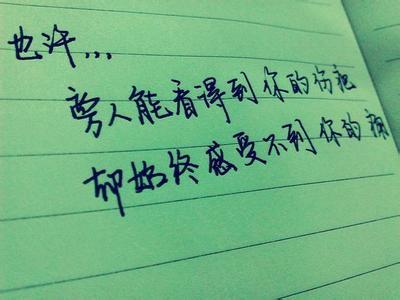 也许...
旁人能看得到你的伤疤
却始终感受不到你的痛